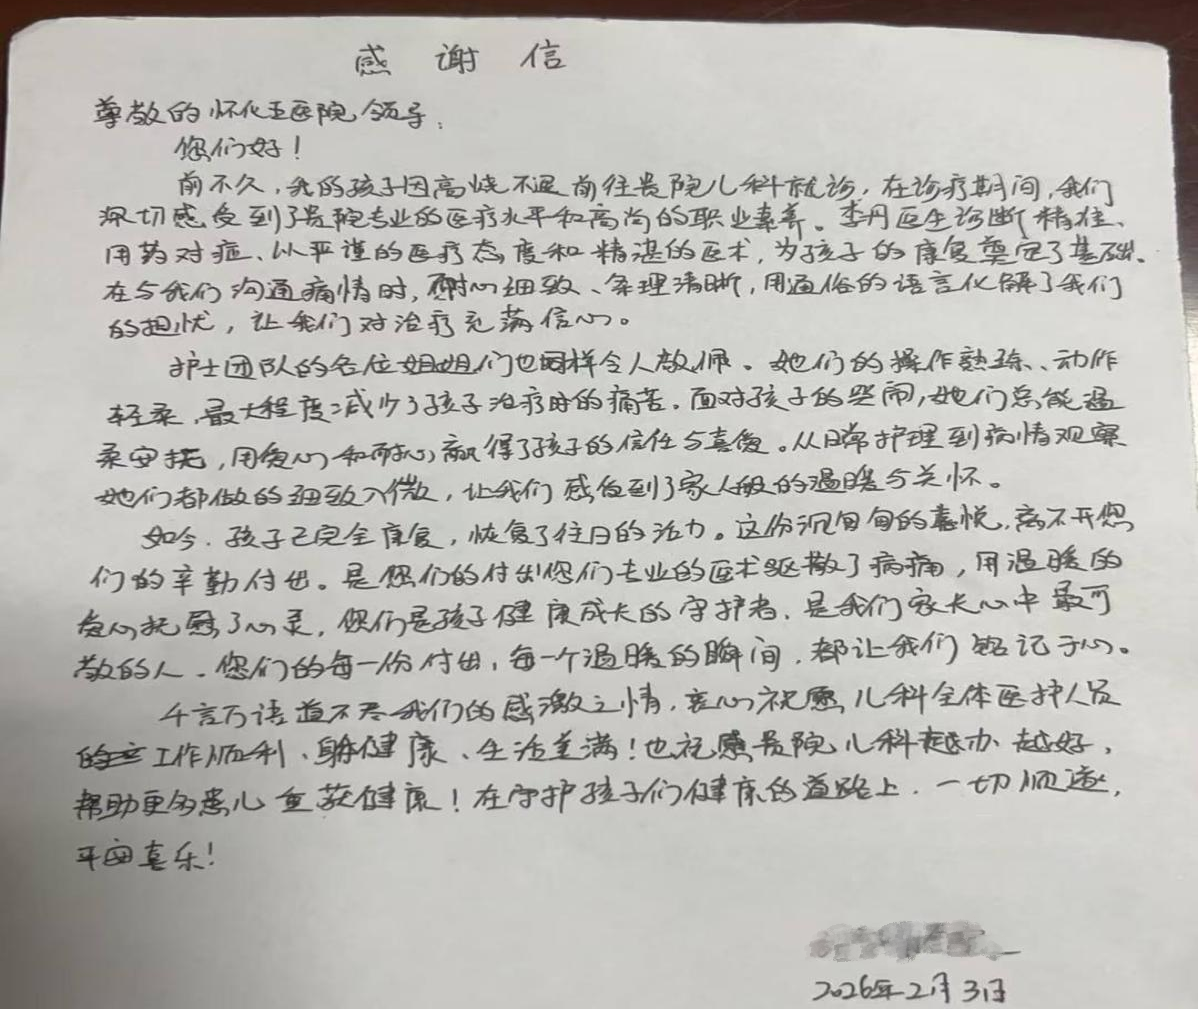 感谢信
尊敬的怀化五医院领导：
您们好！
前不久，我的孩子因高烧不退前往贵院儿科就诊，在诊疗期间，我们
深切感受到了贵院专业的医疗水平和高尚的职业素养。李丹医生诊断精准、
用药对症、以严谨的医疗态度和精湛的医术，为孩子的康复奠定了基础。
在与我们沟通病情时，耐心细致、条理清晰，用通俗的语言化解了我们
的担忧，让我们对治疗充满信心。
护士团队的各位姐姐们也同样令人敬佩。她们的操作熟练、动作
轻柔，最大程度减少了孩子治疗时的痛苦。面对孩子的哭闹，她们总能温
柔安抚，用爱心和耐心赢得了孩子的信任与喜爱。从日常护理到病情观察
她们都做的细致入微，让我们感受到了家人般的温暖与关怀。
如今，孩子已完全康复，恢复了往日的活力。这份沉甸甸的喜悦，离不开您
们的辛勤付出。是您们的付出您们专业的医术驱散了病痛，用温暖的
爱心抚慰了心灵，您们是孩子健康成长的守护者，是我们家长心中最可
敬的人。您们的每一份付出，每一个温暖的瞬间，都让我们铭记于心。
千言万语道不尽我们的感激之情，衷心祝愿儿科全体医护人员
工作顺利、身体健康、生活美满！也祝愿贵院儿科越办越好，
帮助更多患儿重获健康！在守护孩子们健康的道路上，一切顺遂，
平安喜乐！
2026年2月3日